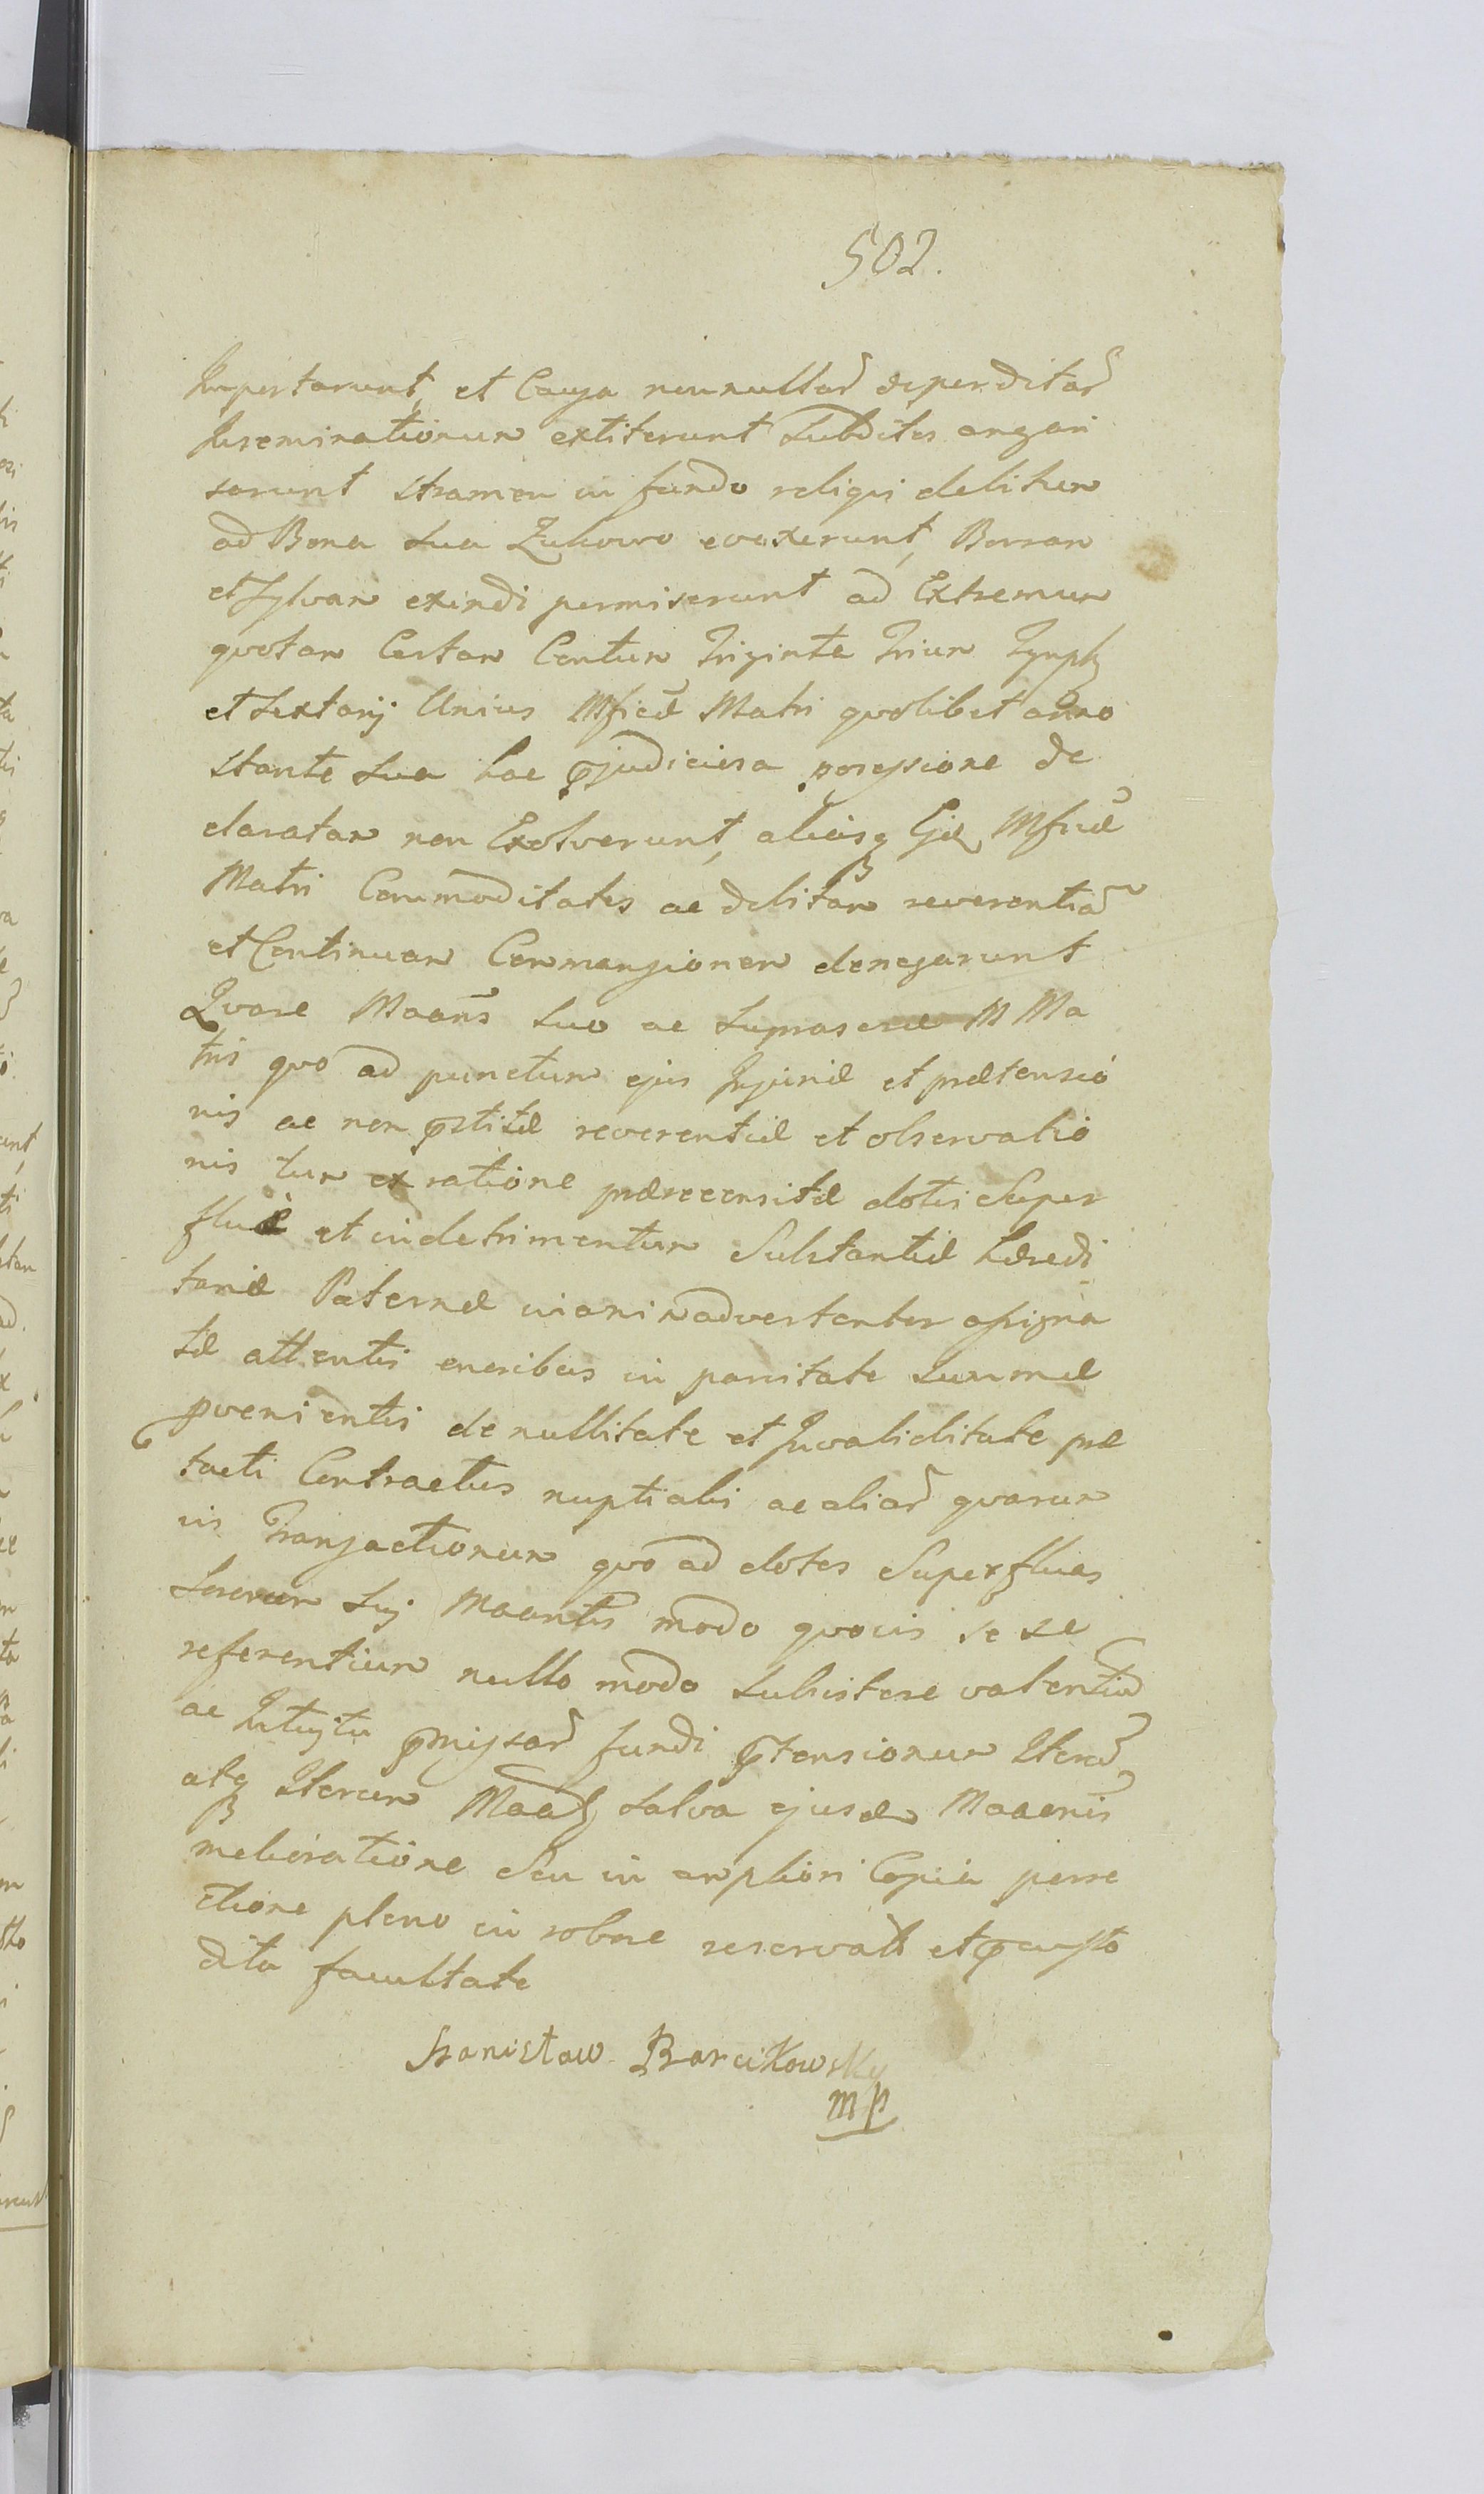 502.
Importarunt, et Causa nonnullar̃ deperditar̃
Inseminationum extiterunt Subditos angari
sarunt stramen in fundo religui debitum
ad Bona sua Zukowo evexerunt, Borram
et Sylvam exindi permiserunt ad Extremum
quotam Certam Centum Triginta Trium Tynph
et sextarij Unius Mficæ Matri quolibet anno
stante sua hac pjudiciosa possessione de
claratam non Exolverunt, aliasq Ejd Mficæ
Matri Commoditates ac debitam reverentiã
et Continuam Commansionem denegarunt
Quare Maañs suo ac suprascræ M Ma
tris quo ad punctum ejus Injuriæ et prætensio
nis ac non pstitæ reverentiæ et observatio
nis tum ex ratione prærecensitæ dotis Super
fluæ et in detrimentum Substantiæ hæredi
tariæ Paternæ inanimadvertenter assigna
tæ attentis oneribus in paritate summæ
pvenientis de nullitate et Invaliditate præ
tacti Contractus nuptialis ac aliar̃ quarum
vis Transactionum quo ad dotes Superfluas
Sororum Suj Maantis modo quovis se se
referentium nullo modo subsistere valentiũ
ac Intuitu pmissar̃ fundi ptensionum Iterũ
atq Iterum Maatz salva ejusdem Maaenis
melioratione seu in ampliori Copia porre
ctione pleno in robore reservata et pcusto
dita facultate
Stanisław Barcikowsky
mp